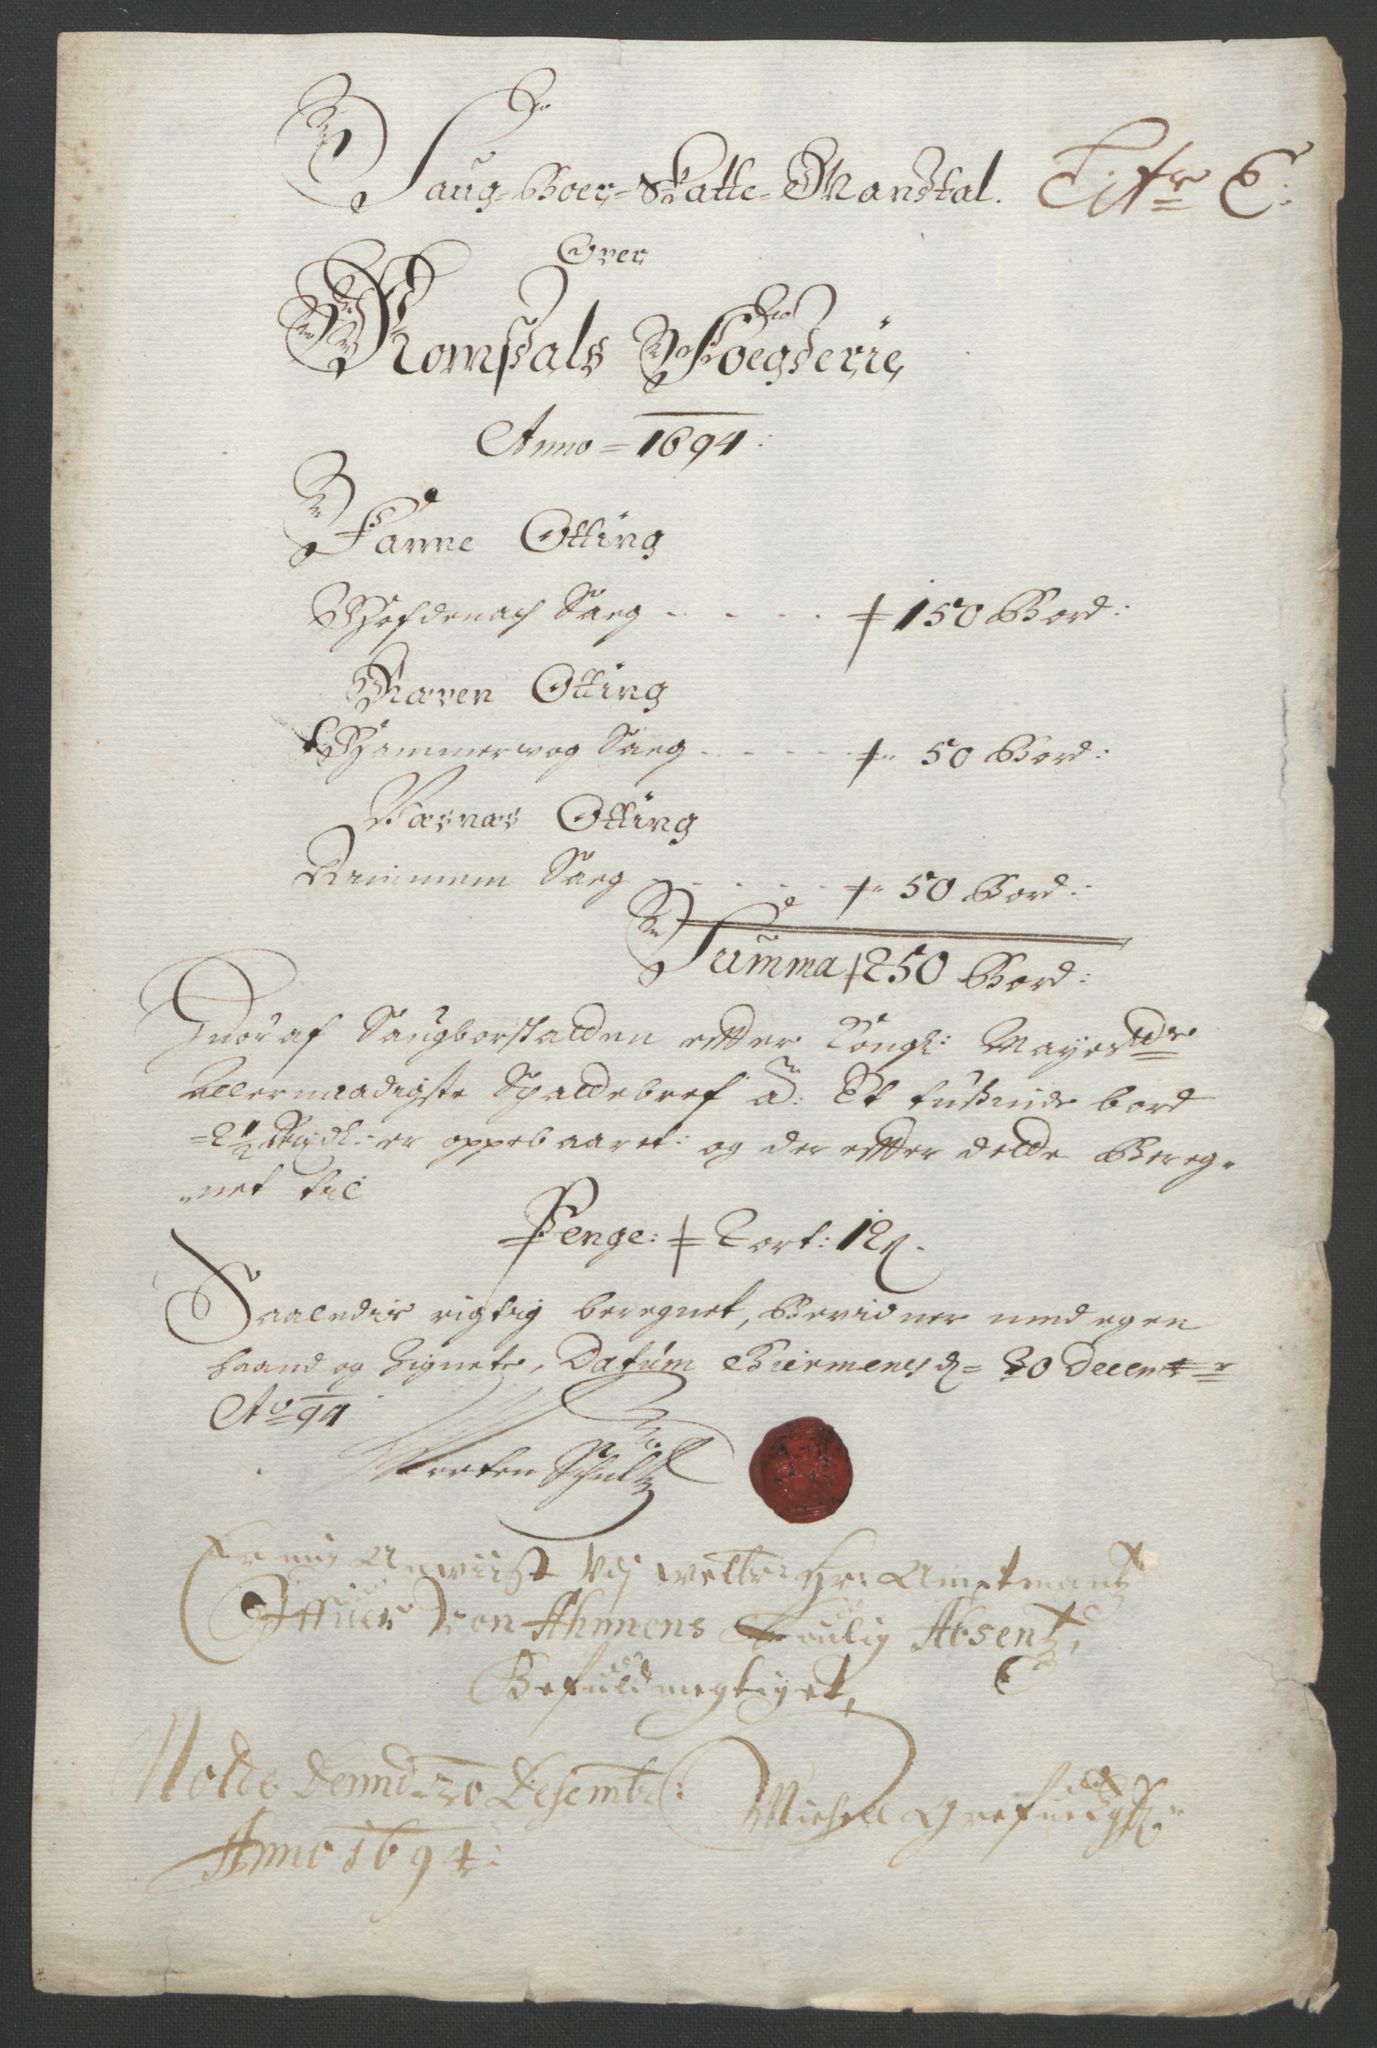 Saug-Boer-Skatte-Mandtal. Litr E:
Over
Romsdals Foegderie
Anno = 1694:
Fanne Otting
Hofdenach Saug - - - - ǂ 150 Bord:
Ræven Otting
Hammerwog Saug - - - - ǂ 50 Bord:
Væsnæs Otting
Rimmem Saug - - - - ǂ 50 Bord:
Summa ǂ 250 Bord:
Hvor af Saugborskatten efter Kongl: Mayestds
Allernaadigste Skattebref â: Et tusinde bord
= 2½ Rixdl: er oppebaaret: og der efter dette Bereg-
-net til
Penge: ǂ Kort: 12
Saaledis rigtig beregnet, Bevidner med egen
haand og Signete, Datum Biermenes d= 20 Decembr
Ao 94
Morten Schultz
Er mig Anwiist Udj welb: Hr: Amptmantz
von Ahnnens Absentz,
Befuldmegtiget,
Molde Dennd 20 Desembr:
Anno 1694:
Michell